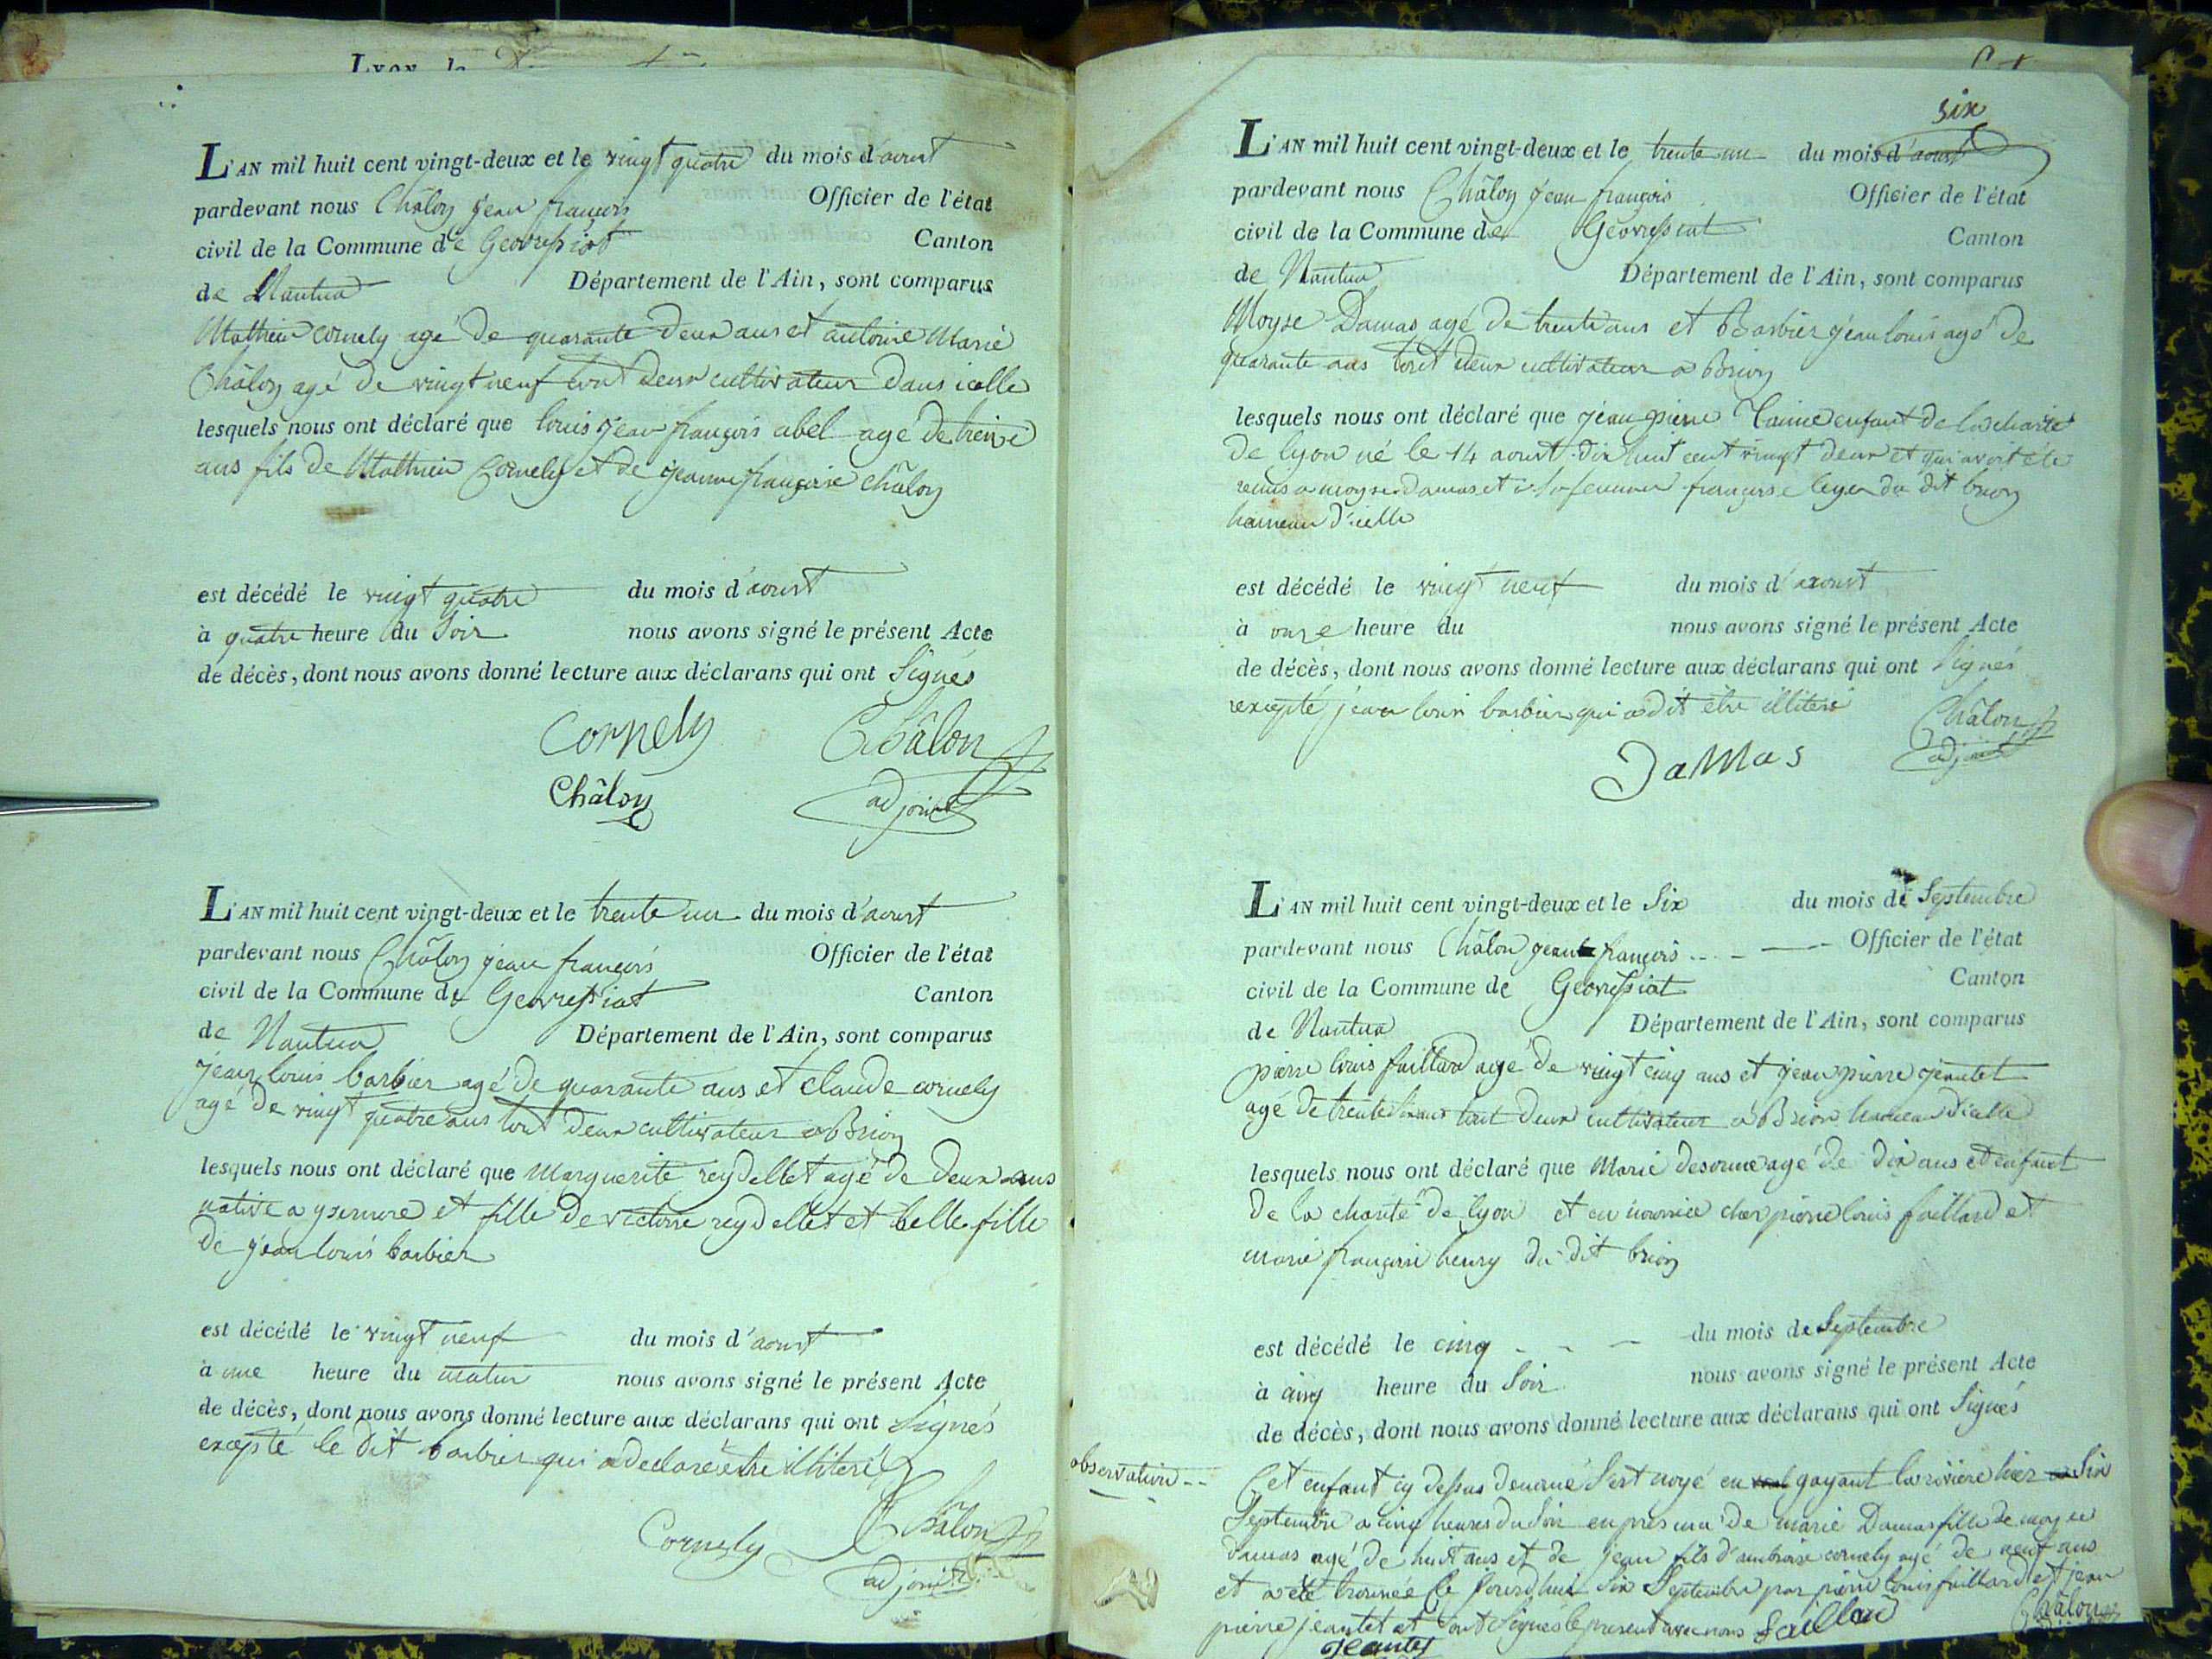 Lyon le
L'AN mil huit cent vingt-deux et le vingt quatre du mois d'aoust
pardevant nous Châlon jean françois Officier de l'état
civil de la Commune de Geovressiat Canton
de Nantua Département de l'Ain, sont comparus
Mathieu cornely agé de quarante deux ans et antoine Marie
Châlon agé de vingt neuf tout deux cultivateur dans icelle
lesquels nous ont déclaré que louis jean françois abel agé de treize
ans fils de Mathieu Cornely et de jeanne françoise châlon
est décédé le vingt quatre du mois d'aoust
à quatre heure du Soir nous avons signé le présent Acte
de décès, dont nous avons donné lecture aux déclarans qui ont Signés
Cornely Châlon
Châlon adjoint
L'AN mil huit cent vingt-deux et le trente un du mois d'aoust
pardevant nous Châlon jean françois Officier de l'état
civil de la Commune de Geovressiat Canton
de Nantua Département de l'Ain, sont comparus
jean louis barbier agé de quarante ans et claude cornely
agé de vingt quatre ans tout deux cultivateur a Brion
lesquels nous ont déclaré que Marguerite reydellet agé de deux ans
native a et fille de victoire reydellet et belle fille
de jean louis barbier
est décédé le vingt neuf du mois d'aoust
à une heure du matin nous avons signé le présent Acte
de décès, dont nous avons donné lecture aux déclarans qui ont Signés
excepté le dit barbier qui a declaré être illiteré
Cornely Châlon
adjoint
six
L'AN mil huit cent vingt-deux et le trente un du mois d'aoust
pardevant nous Châlon jean françois Officier de l'état
civil de la Commune de Geovressiat Canton
de Nantua Département de l'Ain, sont comparus
Moyse Damas agé de trente ans et Barbier jean louis agé de
quarante ans tout deux cultivateur a Brion
lesquels nous ont déclaré que jean pierre enfant de la charité
de lyon né le 14 aoust dix huit cent vingt deux et qui avoit été
remis a moyse damas et a sa femme françoise leger du dit brion
hameau d'icelle
est décédé le vingt neuf du mois d'aoust
à onze heure du nous avons signé le présent Acte
de décès, dont nous avons donné lecture aux déclarans qui ont Signés
excepté jean louis barbier qui a dit être illiteré
Châlon
DaMas adjoint
L'AN mil huit cent vingt-deux et le Six du mois de Septembre
pardevant nous Châlon jean françois Officier de l'état
civil de la Commune de Geovressiat Canton
de Nantua Département de l'Ain, sont comparus
pierre louis faillard agé de vingt cinq ans et jean pierre jeantet
agé de trente six ans tout deux cultivateur a Brion hameau d'icelle
lesquels nous ont déclaré que Marie agé de dix ans et enfant
de la charité de lyon et en nourrice chez pierre louis faillard et
marie françoise henry du dit brion
est décédé le cinq du mois de Septembre
à cinq heure du Soir nous avons signé le présent Acte
de décès, dont nous avons donné lecture aux déclarans qui ont Signés
observation -- Cet enfant cy dessus denomé s'est noyé en gayant la riviere hier Six
Septembre a cinq heures du Soir en présence de marie Damas fille de moyse
damas agé de huit ans et de jean fils d'ambroise cornely agé de neuf ans
et a été trouvée ce jourd'hui Six Septembre par pierre louis faillard et jean
pierre jeantet et ont signés le present avec nous Faillard Châlon
Jeantet